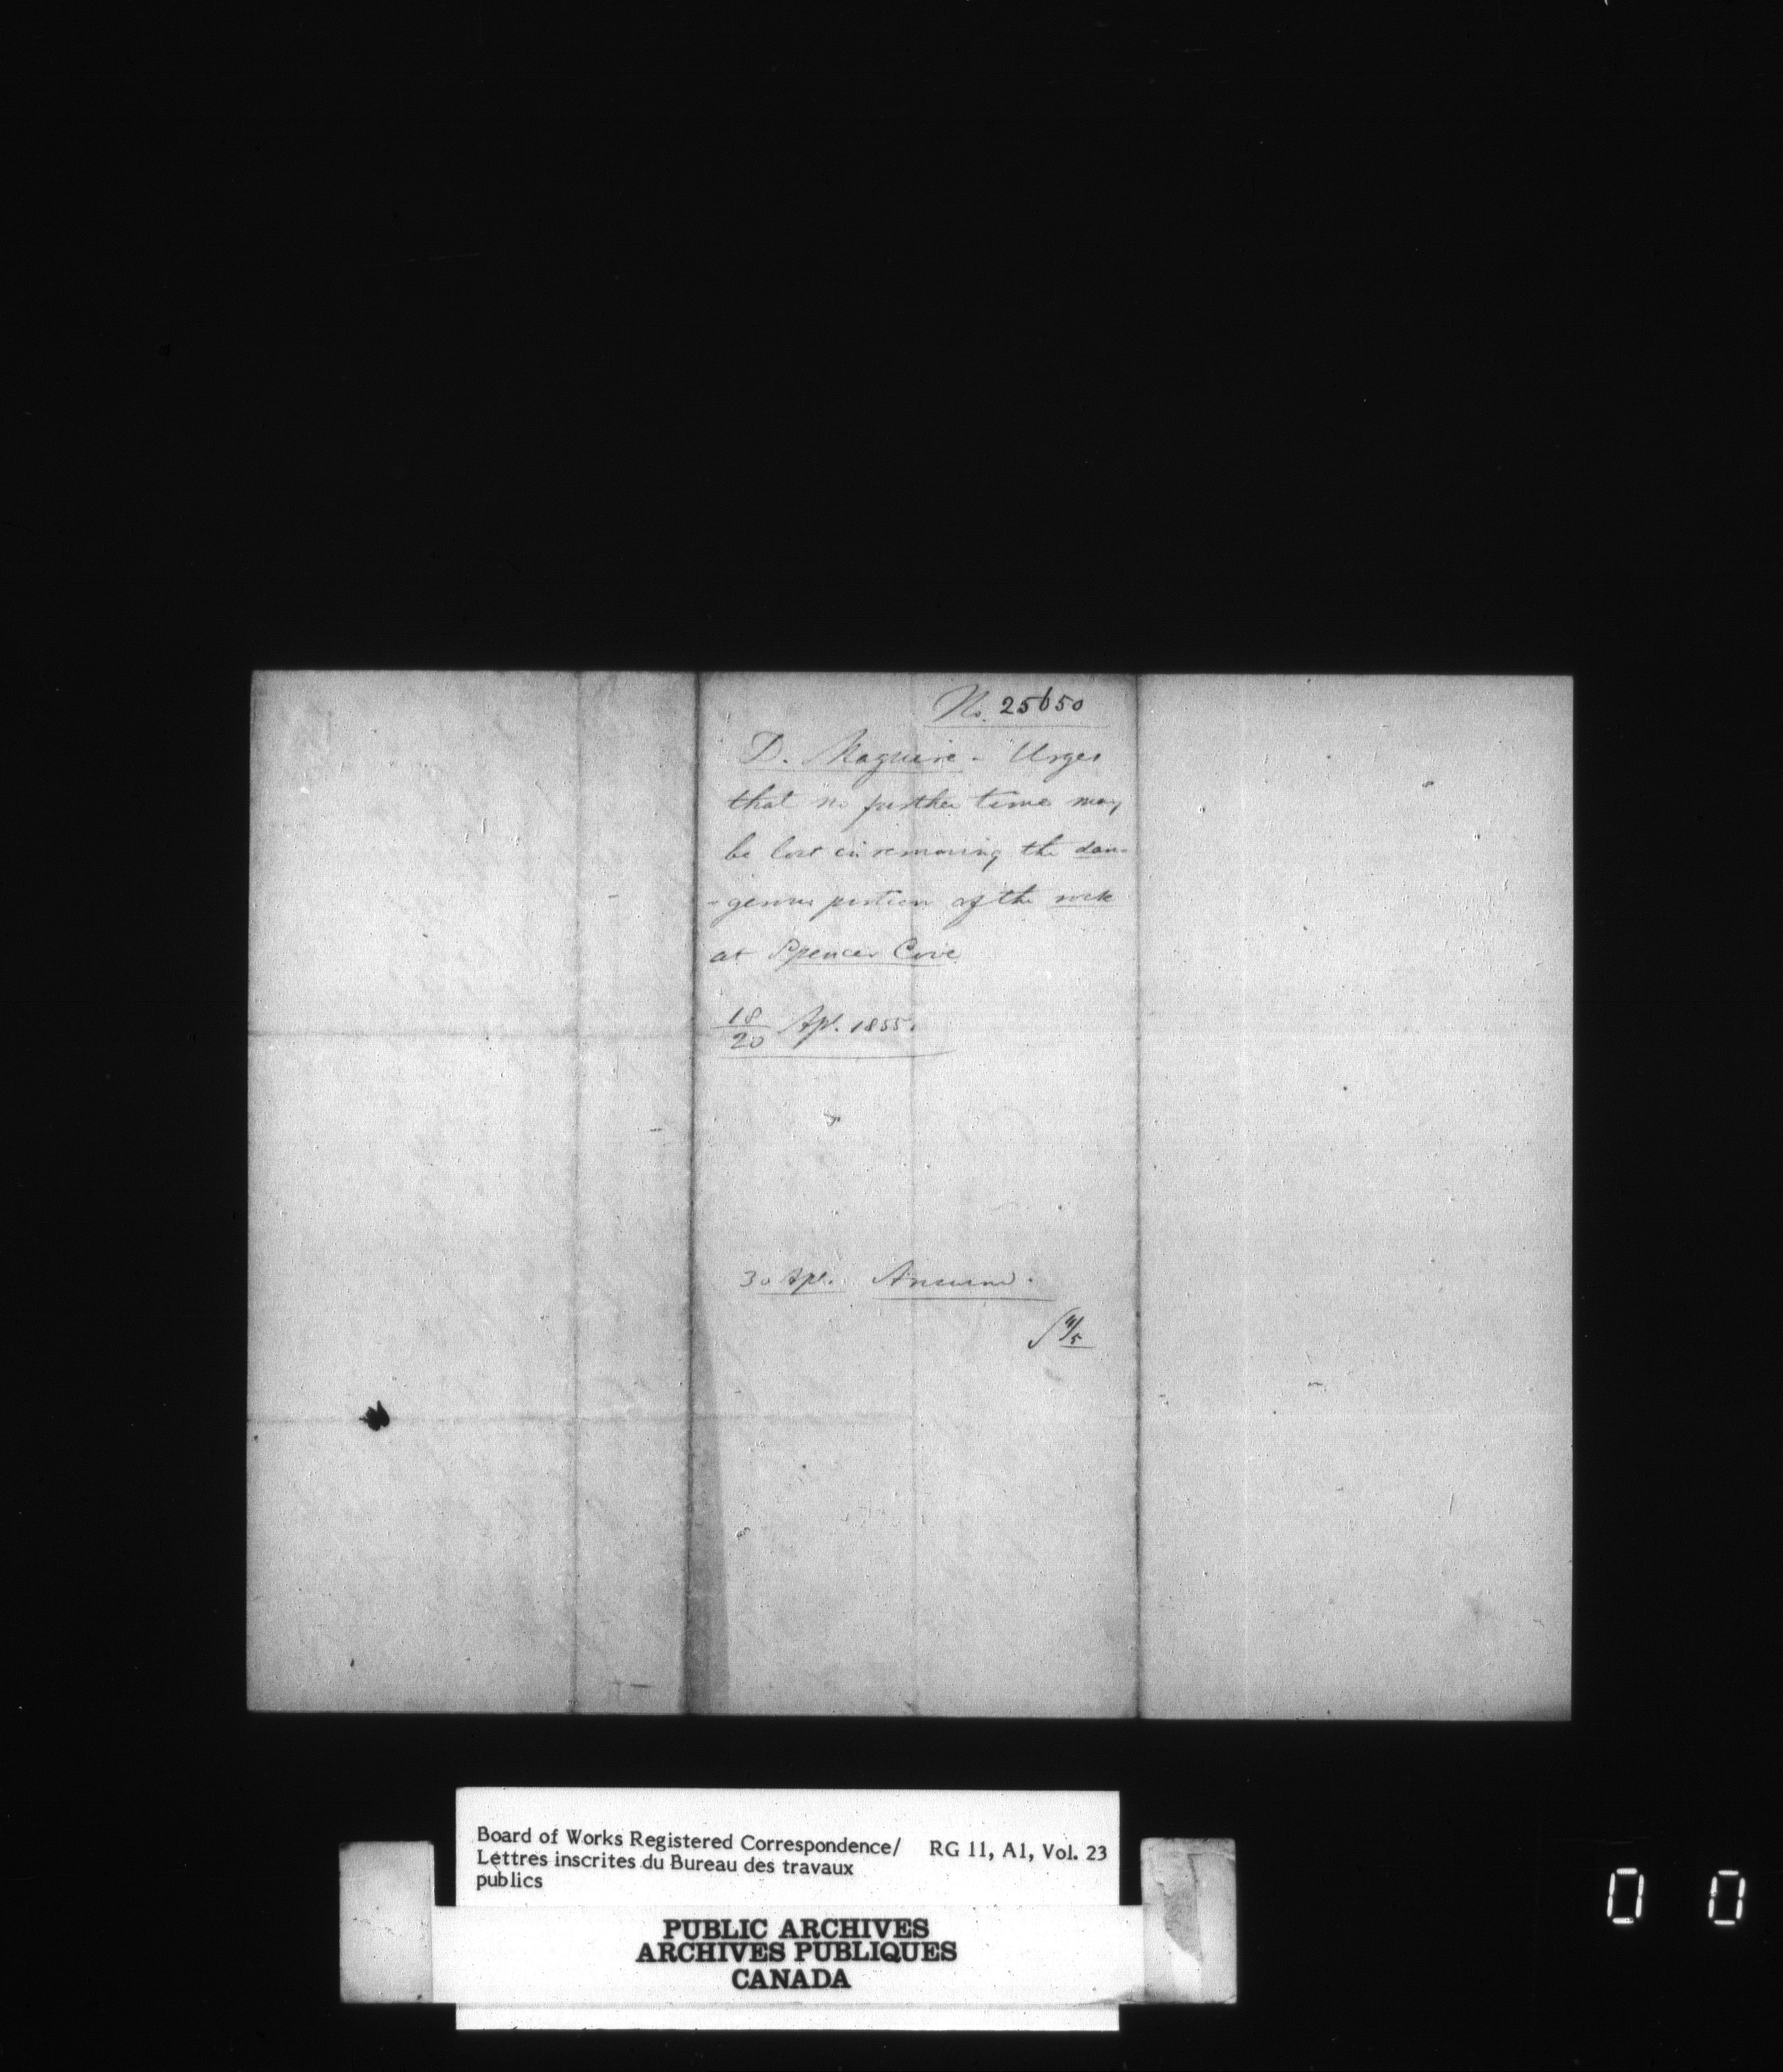 No. 25650
D. Maguire - Urges
that no further time may
be lost in removing the dan-
-gerous portion of the rock
at Spencer Cove
18/20 Apl. 1855.
30 Apl. Answered.
Board of Works Registered Correspondence/ RG 11, A1, Vol. 23
Lettres inscrites du Bureau des travaux
publics
PUBLIC ARCHIVES
ARCHIVES PUBLIQUES
CANADA
0 0